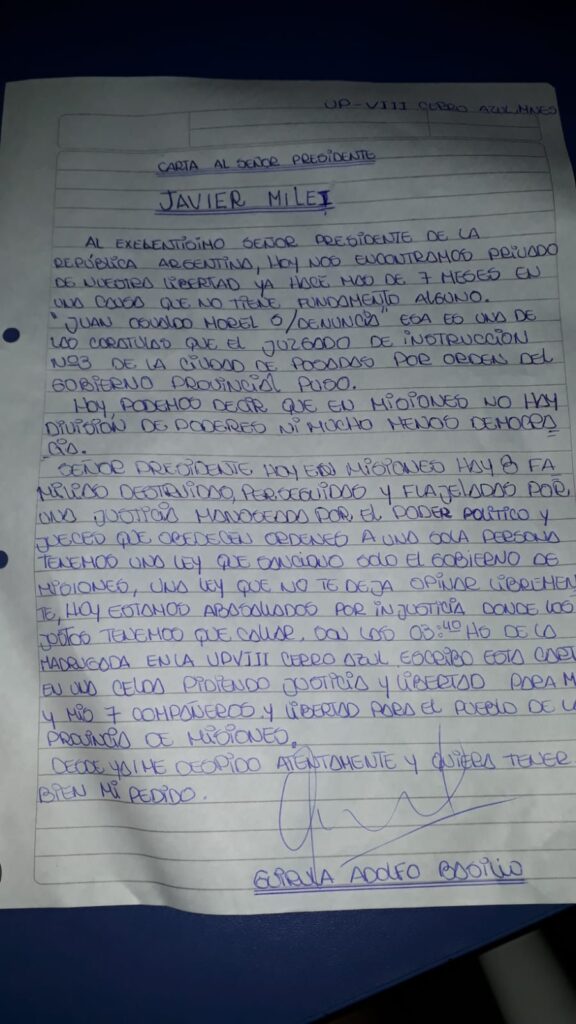 UP-VIII CERRO AZUL MNES
CARTA AL SEÑOR PRESIDENTE
JAVIER MILEI
AL EXELENTISIMO SEÑOR PRESIDENTE DE LA
REPÚBLICA ARGENTINA, HOY NOS ENCONTRAMOS PRIVADO
DE NUESTRA LIBERTAD YA HACE MAS DE 7 MESES EN
UNA CAUSA QUE NO TIENE FUNDAMENTO ALGUNO.
"JUAN OSVALDO MOREL S/DENUNCIA" ESA ES UNA DE
LAS CARATULAS QUE EL JUZGADO DE INSTRUCCIÓN
Nº3 DE LA CIUDAD DE POSADAS POR ORDEN DEL
GOBIERNO PROVINCIAL PUSO.
HOY, PODEMOS DECIR QUE EN MISIONES NO HAY
DIVISIÓN DE PODERES NI MUCHO MENOS DEMOCRA
CIA.
SEÑOR PRESIDENTE HOY EN MISIONES HAY 8 FA
MILIAS DESTRUIDAS, PERSEGUIDAS Y FLAJELADAS POR,
UNA JUSTICIA MANOSEADA POR EL PODER POLITICO Y
JUECES QUE OBEDECEN ORDENES A UNA SOLA PERSONA
TENEMOS UNA LEY QUE SANCIONO SOLO EL GOBIERNO DE
MISIONES, UNA LEY QUE NO TE DEJA OPINAR LIBREMEN
TE, HOY ESTAMOS ABASALLADOS POR INJUSTICIA DONDE LOS
JUSTOS TENEMOS QUE CALLAR. SON LAS 03:40 HS DE LA
MADRUGADA EN LA UPVIII CERRO AZUL ESCRIBO ESTA CART
EN UNA CELDA PIDIENDO JUSTICIA Y LIBERTAD PARA M
Y MIS 7 COMPAÑEROS, Y LIBERTAD PARA EL PUEBLO DE LA
PROVINCIA DE MISIONES.
DESDE YA, ME DESPIDO ATENTAMENTE Y QUIERA TENER
BIEN MI PEDIDO.
GUIRULA ADOLFO BASILIO